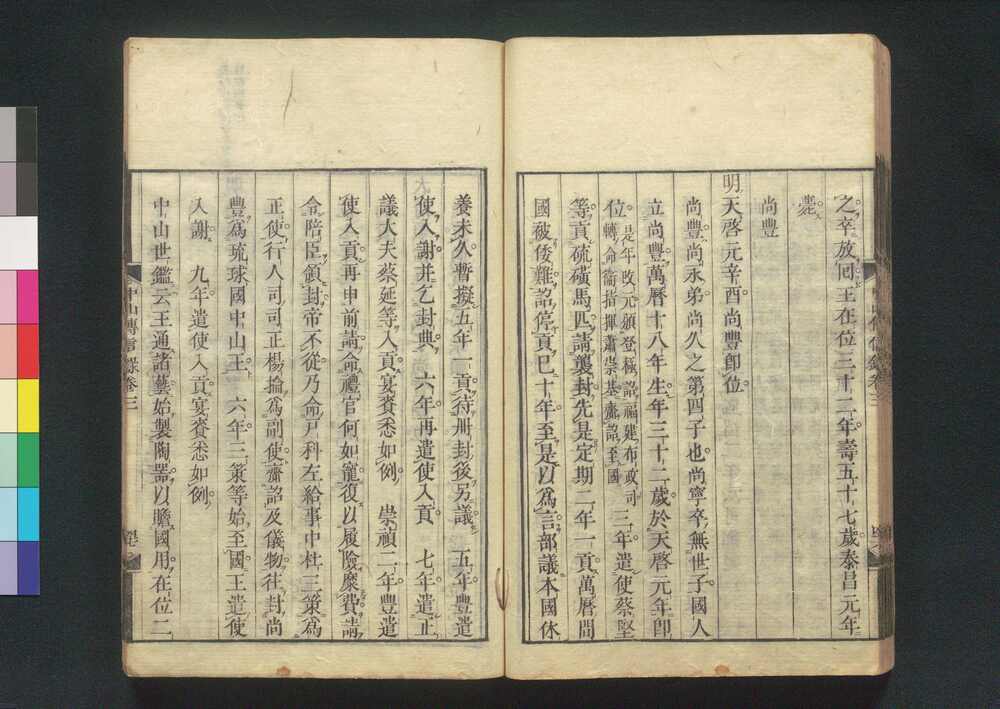 之卒放回王在位三十二年壽五十七歲泰昌元年
薨
尚豐
明天啓元辛酉尚豐卽位
尚豐尚永弟尚久之第四子也尚寧卒無世子國人
立尚豐萬曆十八年生年三十二歲於天啓元年卽
位是年改元頒登極詔福建布政司
轉命衞指揮蕭崇基齎詔至國三年遣使蔡堅
等貢硫磺馬匹請襲封先是定期二年一貢萬曆間
國被倭難詔停貢巳十年至是以爲言部議本國休
養未久暫擬五年一貢待册封後另議 五年豐遣
使入謝并乞封典 六年再遣使入貢 七年遣正
議大夫蔡延等入貢宴賚悉如例 崇禎二年豐遣
使入貢再申前請命禮官何如寵復以履險糜費請
令陪臣領封帝不從乃命戸科左給事中杜三策爲
正使行人司司正楊掄爲副使齎詔及儀物往封尚
豐爲琉球國中山王 六年三策等始至國王遣使
入謝 九年遣使入貢宴賚悉如例
中山世鑑云王通諸藝始製陶器以贍國用在位二
中山傳信錄卷三